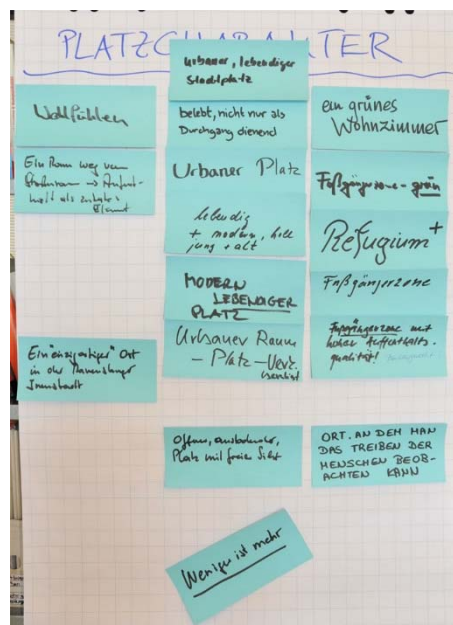 PLATZCHARAKTER
Wohlfühlen
Ein Raum weg vom
als
Ein "einzigartiger" Ort
in der Ravensburger
Innenstadt
urbaner, lebendiger
Stadtplatz
belebt, nicht nur als
Durchgang dienend
Urbaner Platz
lebendig
+ modern, hell
jung + alt
MODERN
LEBENDIGER
PLATZ
Urbaner Raum
- Platz -
Offener,
Platz mit freier Sicht
Weniger ist mehr
ein grünes
Wohnzimmer
Fußgängerzone - grün
Refugium+
Fußgängerzone
Fußgängerzone mit
hoher Aufenthalts-
qualität!
ORT, AN DEM MAN
DAS TREIBEN DER
MENSCHEN BEOB-
ACHTEN KANN